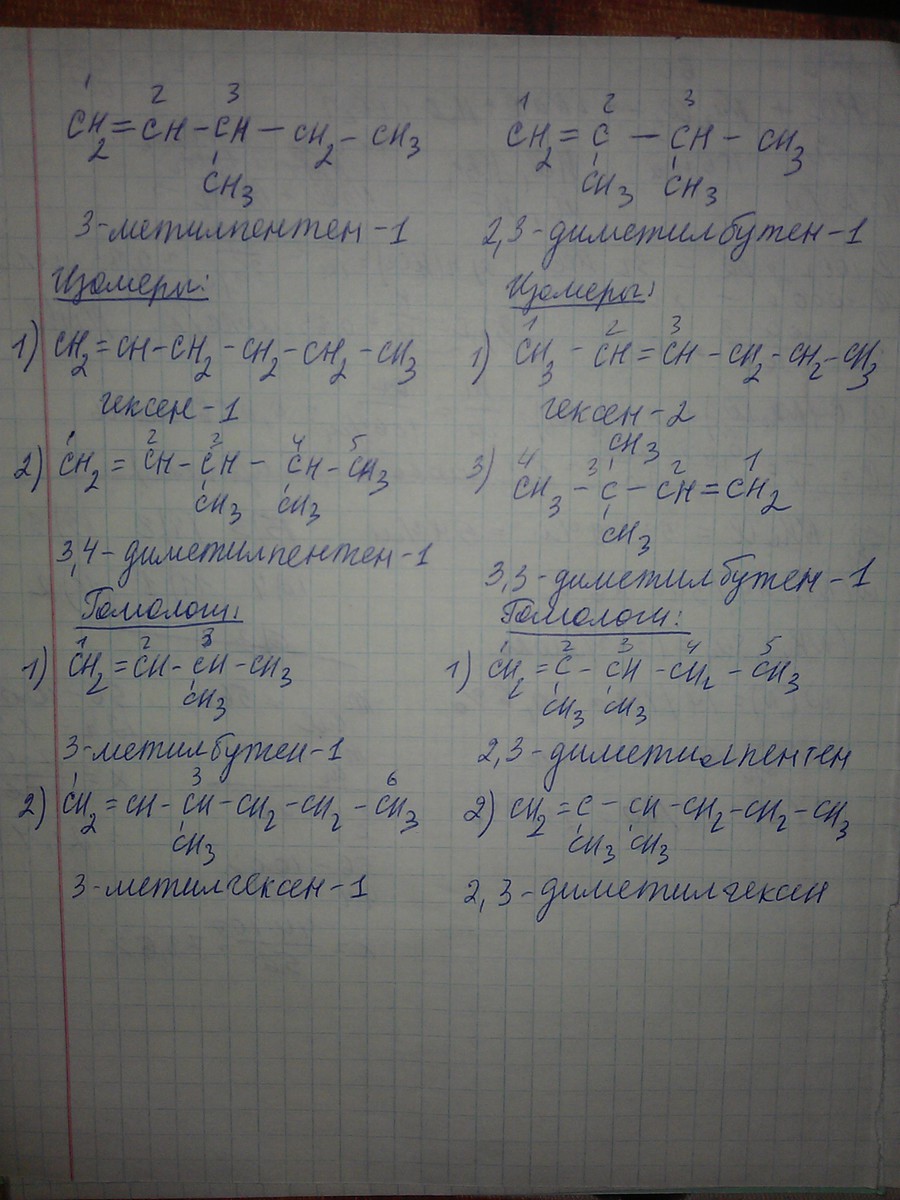 1 2 3
CH2=CH-CH-CH2-CH3
CH3
3-метилпентен-1
Изомеры:
1) CH2=CH-CH2-CH2-CH2-CH3
гексен-1
1 2 3 4 5
2) CH2=CH-CH-CH-CH3
CH3 CH3
3,4-диметилпентен-1
Гомологи:
1 2 3
1) CH2=CH-CH-CH3
CH3
3-метилбутен-1
1 3 6
2) CH2=CH-CH-CH2-CH2-CH3
CH3
3-метилгексен-1
1 2 3
CH2=C-CH-CH3
CH3 CH3
2,3-диметилбутен-1
Изомеры:
1 2 3
1) CH3-CH=CH-CH2-CH2-CH3
гексен-2
CH3
4 3 2 1
3) CH3-C-CH=CH2
CH3
3,3-диметилбутен-1
Гомологи:
1 2 3 4 5
1) CH2=C-CH-CH2-CH3
CH3 CH3
2,3-диметилпентен
2) CH2=C-CH-CH2-CH2-CH3
CH3 CH3
2,3-диметилгексен